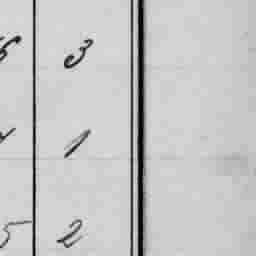 3
1
5 2